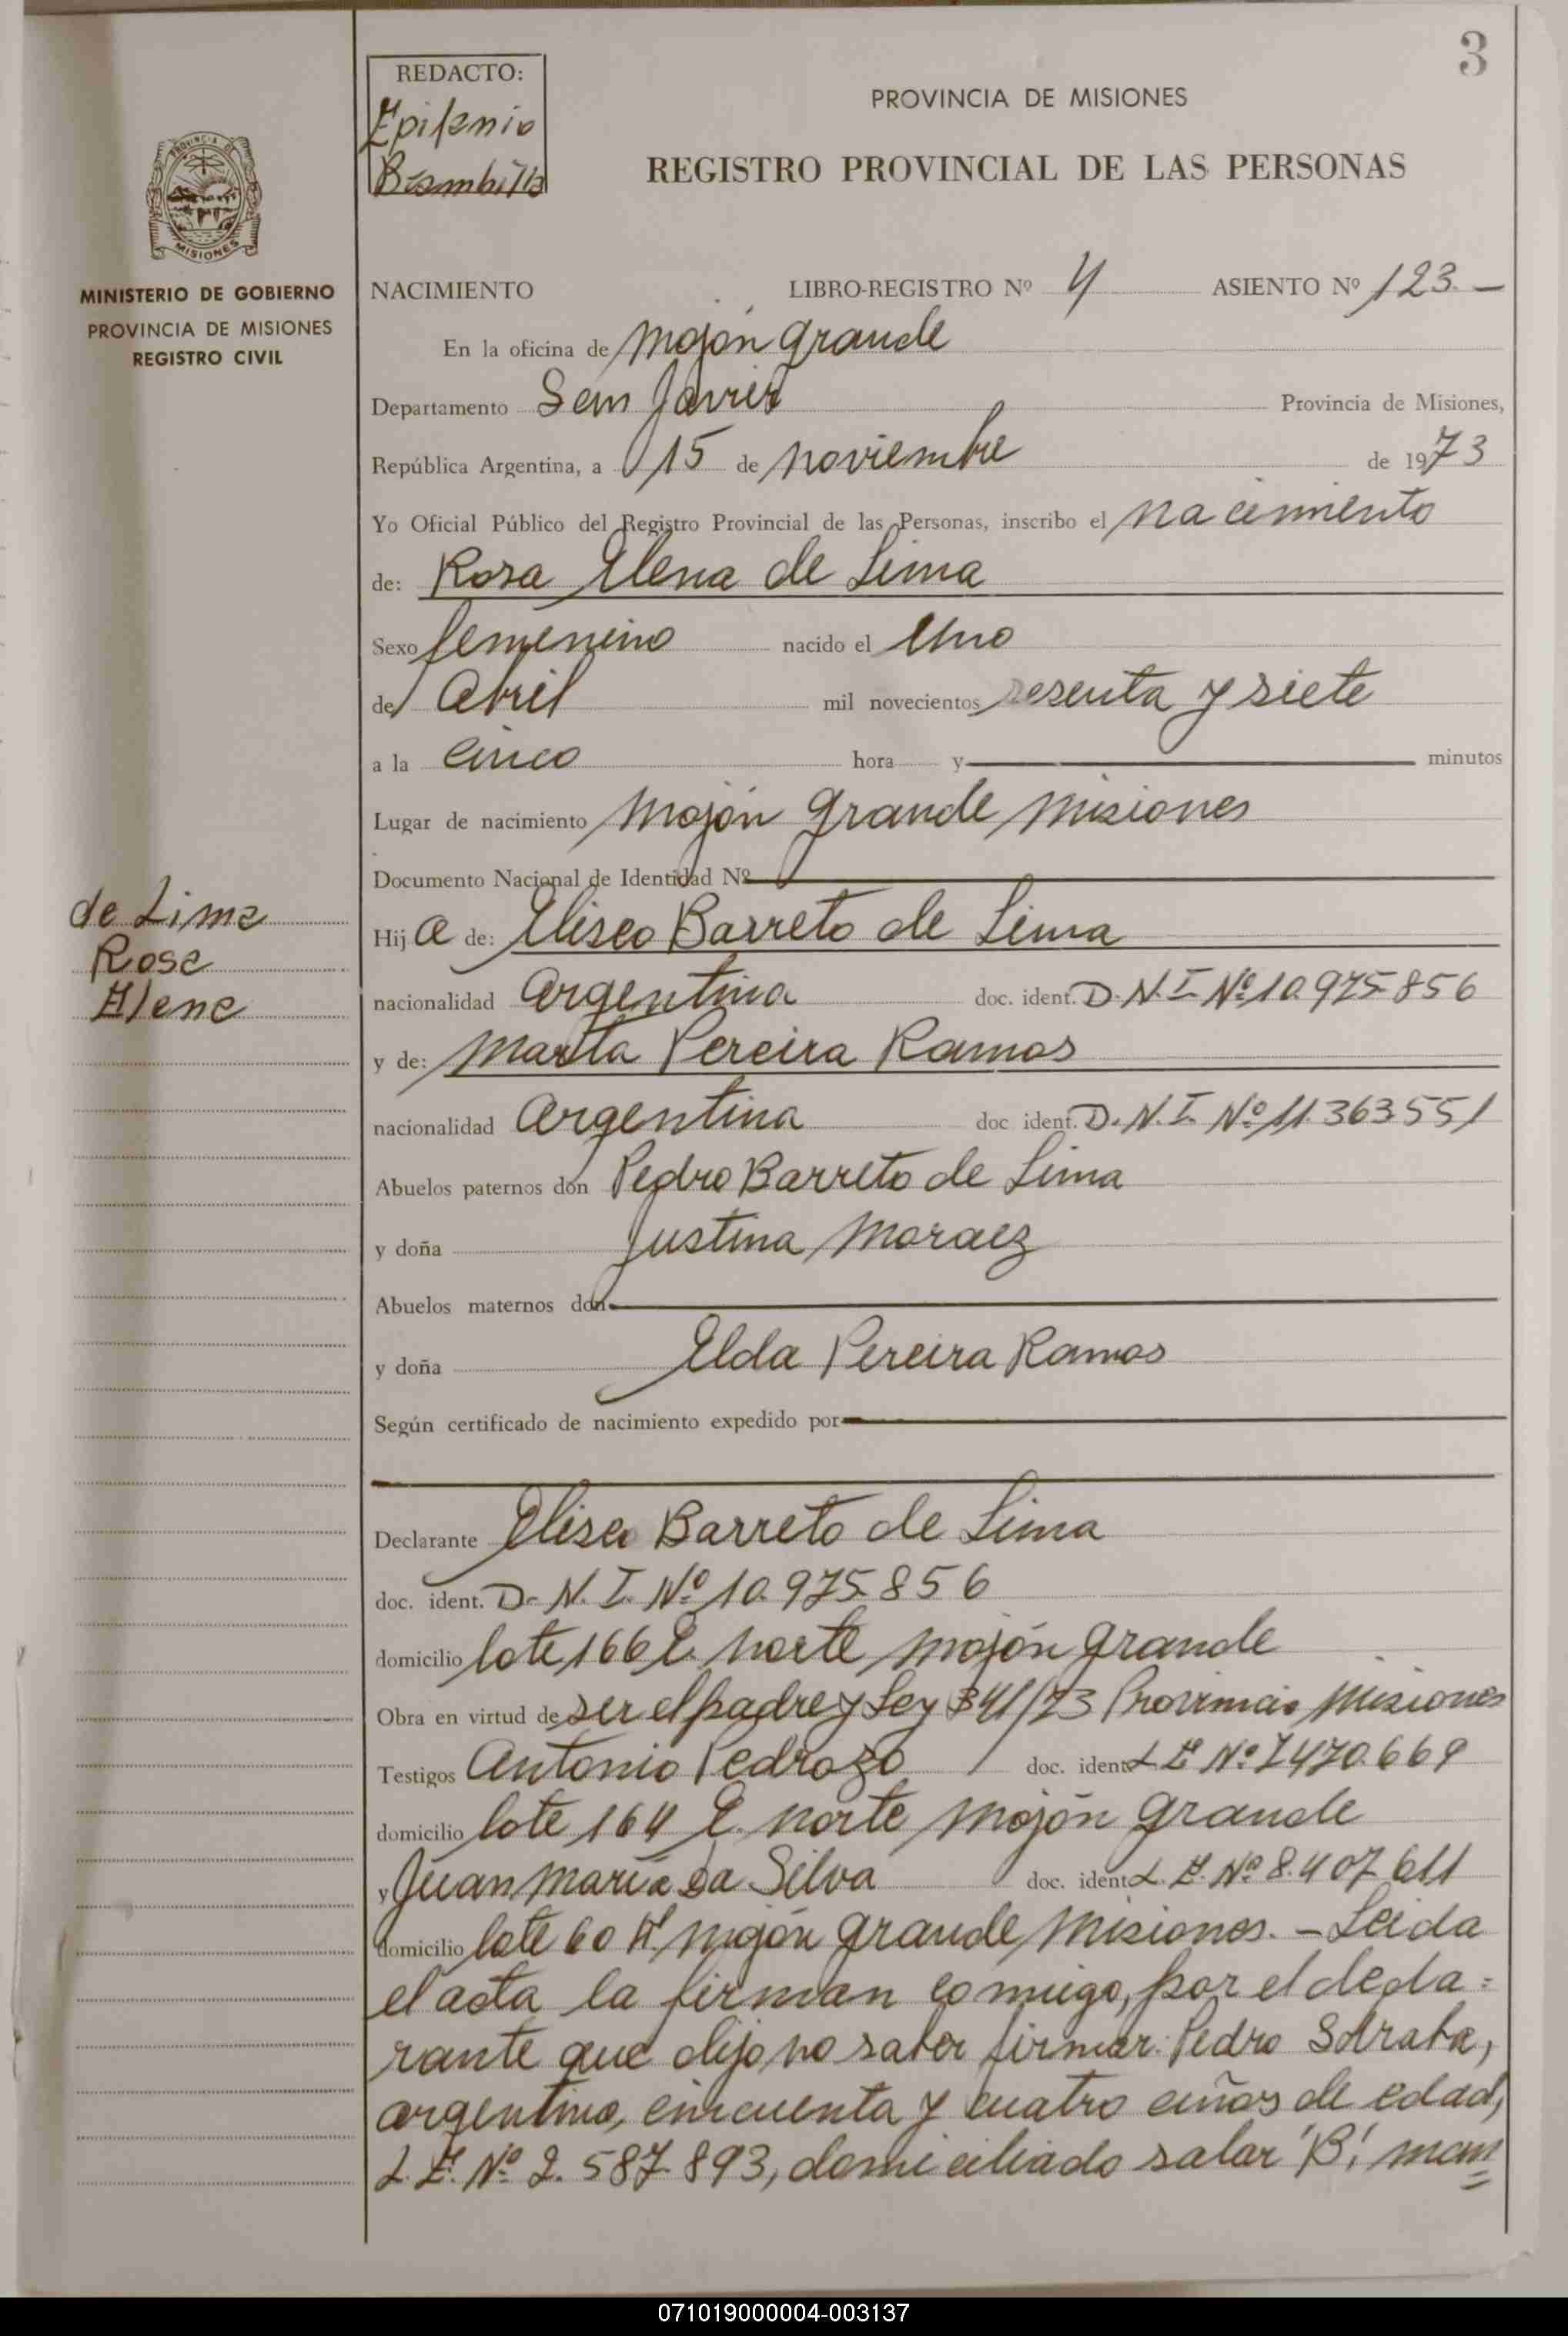 3
REDACTO:
Epifanio
Brambilla
PROVINCIA DE MISIONES
REGISTRO PROVINCIAL DE LAS PERSONAS
PROVINCIA DE
MISIONES
MINISTERIO DE GOBIERNO
PROVINCIA DE MISIONES
REGISTRO CIVIL
NACIMIENTO LIBRO-REGISTRO Nº 4 ASIENTO Nº 123.—
En la oficina de Mojón Grande
Departamento San Javier Provincia de Misiones,
República Argentina, a 15 de noviembre de 1973
Yo Oficial Público del Registro Provincial de las Personas, inscribo el nacimiento
de: Rosa Elena de Lima
Sexo femenino nacido el Uno
de Abril mil novecientos sesenta y siete
a la cinco hora y minutos
Lugar de nacimiento Mojón Grande Misiones
Documento Nacional de Identidad Nº
de Lima
Rosa
Elena
Hija de: Eliseo Barreto de Lima
nacionalidad Argentina doc. ident. D.N.I. Nº 10.975.856
y de: Marta Pereira Ramos
nacionalidad Argentina doc ident. D.N.I. Nº 11.363.551
Abuelos paternos don Pedro Barreto de Lima
y doña Justina Moraez
Abuelos maternos don
y doña Elda Pereira Ramos
Según certificado de nacimiento expedido por
Declarante Eliseo Barreto de Lima
doc. ident. D.N.I. Nº 10.975.856
domicilio lote 166 L. norte Mojón Grande
Obra en virtud de ser el padre y Ley 341/73 Provincia Misiones
Testigos Antonio Pedrozo doc. ident. L.E. Nº 7.470.669
domicilio lote 164 L. norte Mojón Grande
y Juan Maria Da Silva doc. ident. L.E. Nº 8.407.611
domicilio lote 60 A. Mojón Grande Misiones.— Leida
el acta la firman conmigo, por el decla=
rante que dijo no saber firmar: Pedro Sdraba,
argentino, cincuenta y cuatro años de edad,
L.E. Nº 2.587.893, domiciliado salar "B", man=
071019000004-003137